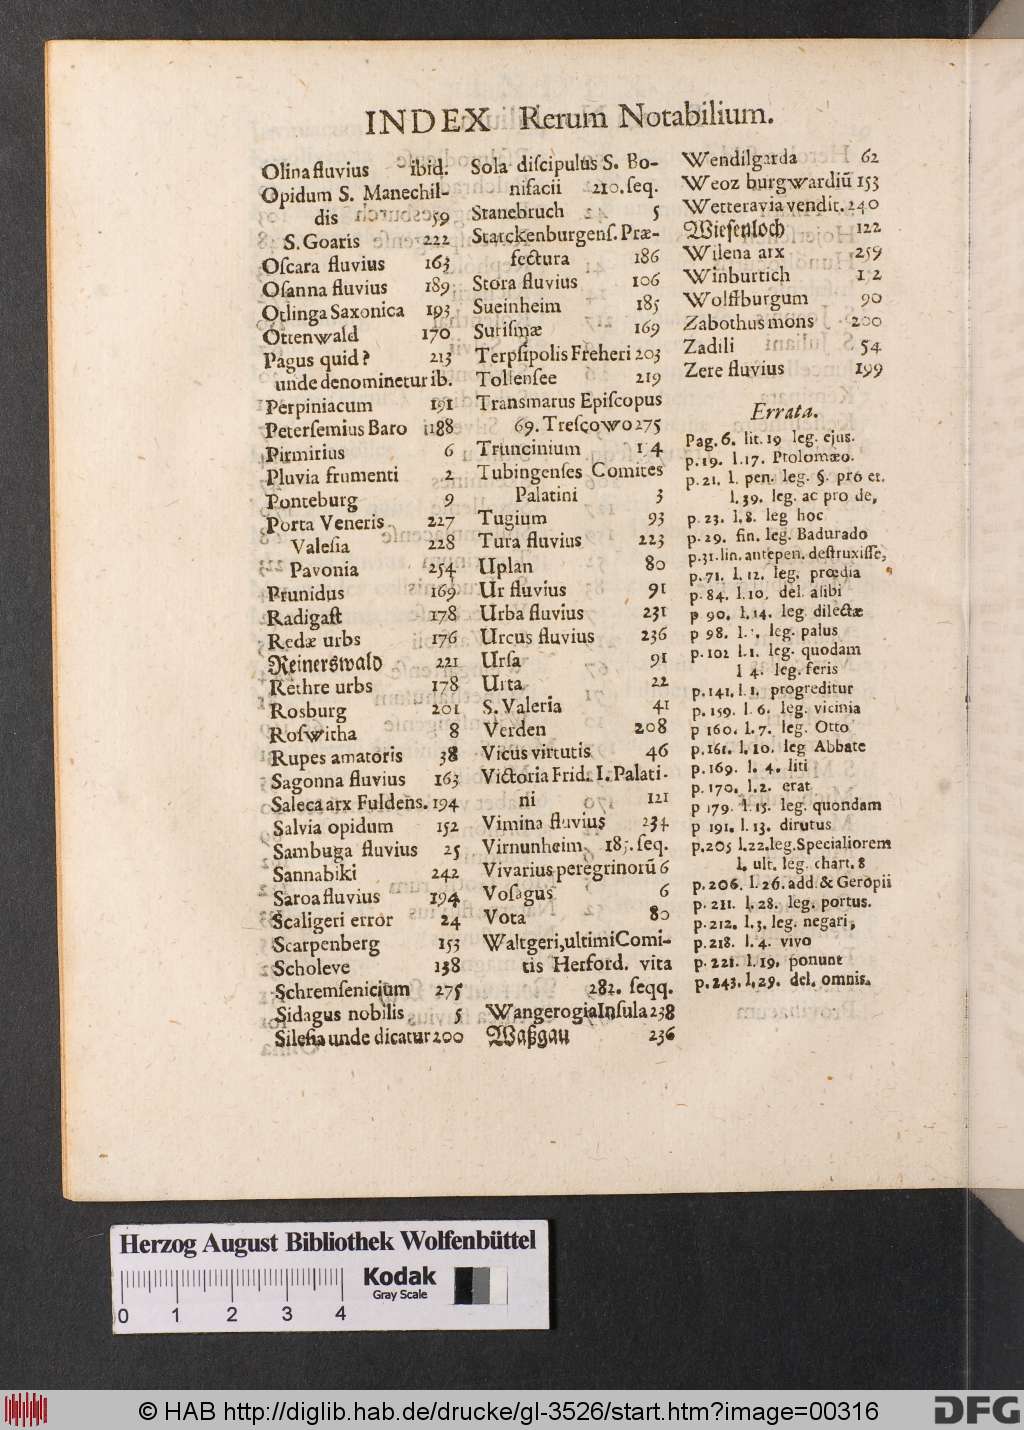 INDEX Rerum Notabilium.
Olina fluvius ibid.
Opidum S. Manechil-
dis 59
S. Goaris 222
Oſcara fluvius 163
Oſanna fluvius 189
Otlinga Saxonica 193
Ottenwald 170
Pagus quid? 213
unde denominetur ib.
Perpiniacum 191
Peterſemius Baro 188
Pirmirius 6
Pluvia frumenti 2
Ponteburg 9
Porta Veneris 227
Valeſia 228
Pavonia 254
Prunidus 169
Radigaſt 178
Redæ urbs 176
Reinerswald 221
Rethre urbs 178
Rosburg 201
Roſwitha 8
Rupes amatoris 38
Sagonna fluvius 163
Saleca arx Fuldens. 194
Salvia opidum 152
Sambuga fluvius 25
Sannabiki 242
Saroa fluvius 194
Scaligeri error 24
Scarpenberg 153
Scholeve 138
Schremſenicium 275
Sidagus nobilis 5
Sileſia unde dicatur 200
Sola diſcipulus S. Bo-
nifacii 210. ſeq.
Stanebruch 5
Starckenburgenſ. Præ-
fectura 186
Stora fluvius 106
Sueinheim 185
Suriſinæ 169
Terpſipolis Freheri 203
Tollenſee 219
Transmarus Epiſcopus
69. Treſcowo 275
Truncinium 1 4
Tubingenſes Comites
Palatini 3
Tugium 93
Tura fluvius 223
Uplan 80
Ur fluvius 91
Urba fluvius 231
Urcus fluvius 236
Urſa 91
Urta 22
S. Valeria 41
Verden 208
Vicus virtutis 46
Victoria Frid. I. Palati-
ni 121
Vimina fluvius 234
Virnunheim 187. ſeq.
Vivarius peregrinorū 6
Voſagus 6
Vota 80
Waltgeri, ultimi Comi-
tis Herford. vita
282. ſeqq.
Wangerogia Inſula 238
Waßgau 236
Wendilgarda 62
Weoz burgwardiū 153
Wetteravia vendit. 240
Wieſenloch 122
Wilena arx 259
Winburtich 1 2
Wolffburgum 90
Zabothus mons 200
Zadili 54
Zere fluvius 199
Errata.
Pag. 6. lit. 19 leg. ejus.
p. 19. l. 17. Ptolomæo.
p. 21. l. pen. leg. §. pro et.
l. 39. leg. ac pro de,
p. 23. l. 8. leg hoc
p. 29. fin. leg. Badurado
p. 31. lin. antepen. deſtruxiſſe,
p. 71. l. 12. leg. prœdia
p. 84. l. 10. del. aſibi
p 90. l. 14. leg. dilectæ
p 98. l. leg. palus
p. 102 l. 1. leg. quodam
l 4. leg. feris
p. 141. l. 1. progreditur
p. 159. l. 6. leg. vicinia
p 160. l. 7. leg. Otto
p. 161. l. 10. leg Abbate
p. 169. l. 4. liti
p. 170. l. 2. erat
p 179. l. 15. leg. quondam
p 191. l. 13. dirutus
p. 205 l. 22. leg. Specialiorem
l. ult. leg. chart. 8
p. 206. l. 26. add. & Geropii
p. 211. l. 28. leg. portus.
p. 212. l. 3. leg. negari,
p. 218. l. 4. vivo
p. 221. l. 19. ponunt
p. 243. l. 29. del. omnis.
Herzog August Bibliothek Wolfenbüttel
Kodak
Gray Scale
0 1 2 3 4
© HAB http://diglib.hab.de/drucke/gl-3526/start.htm?image=00316
DFG